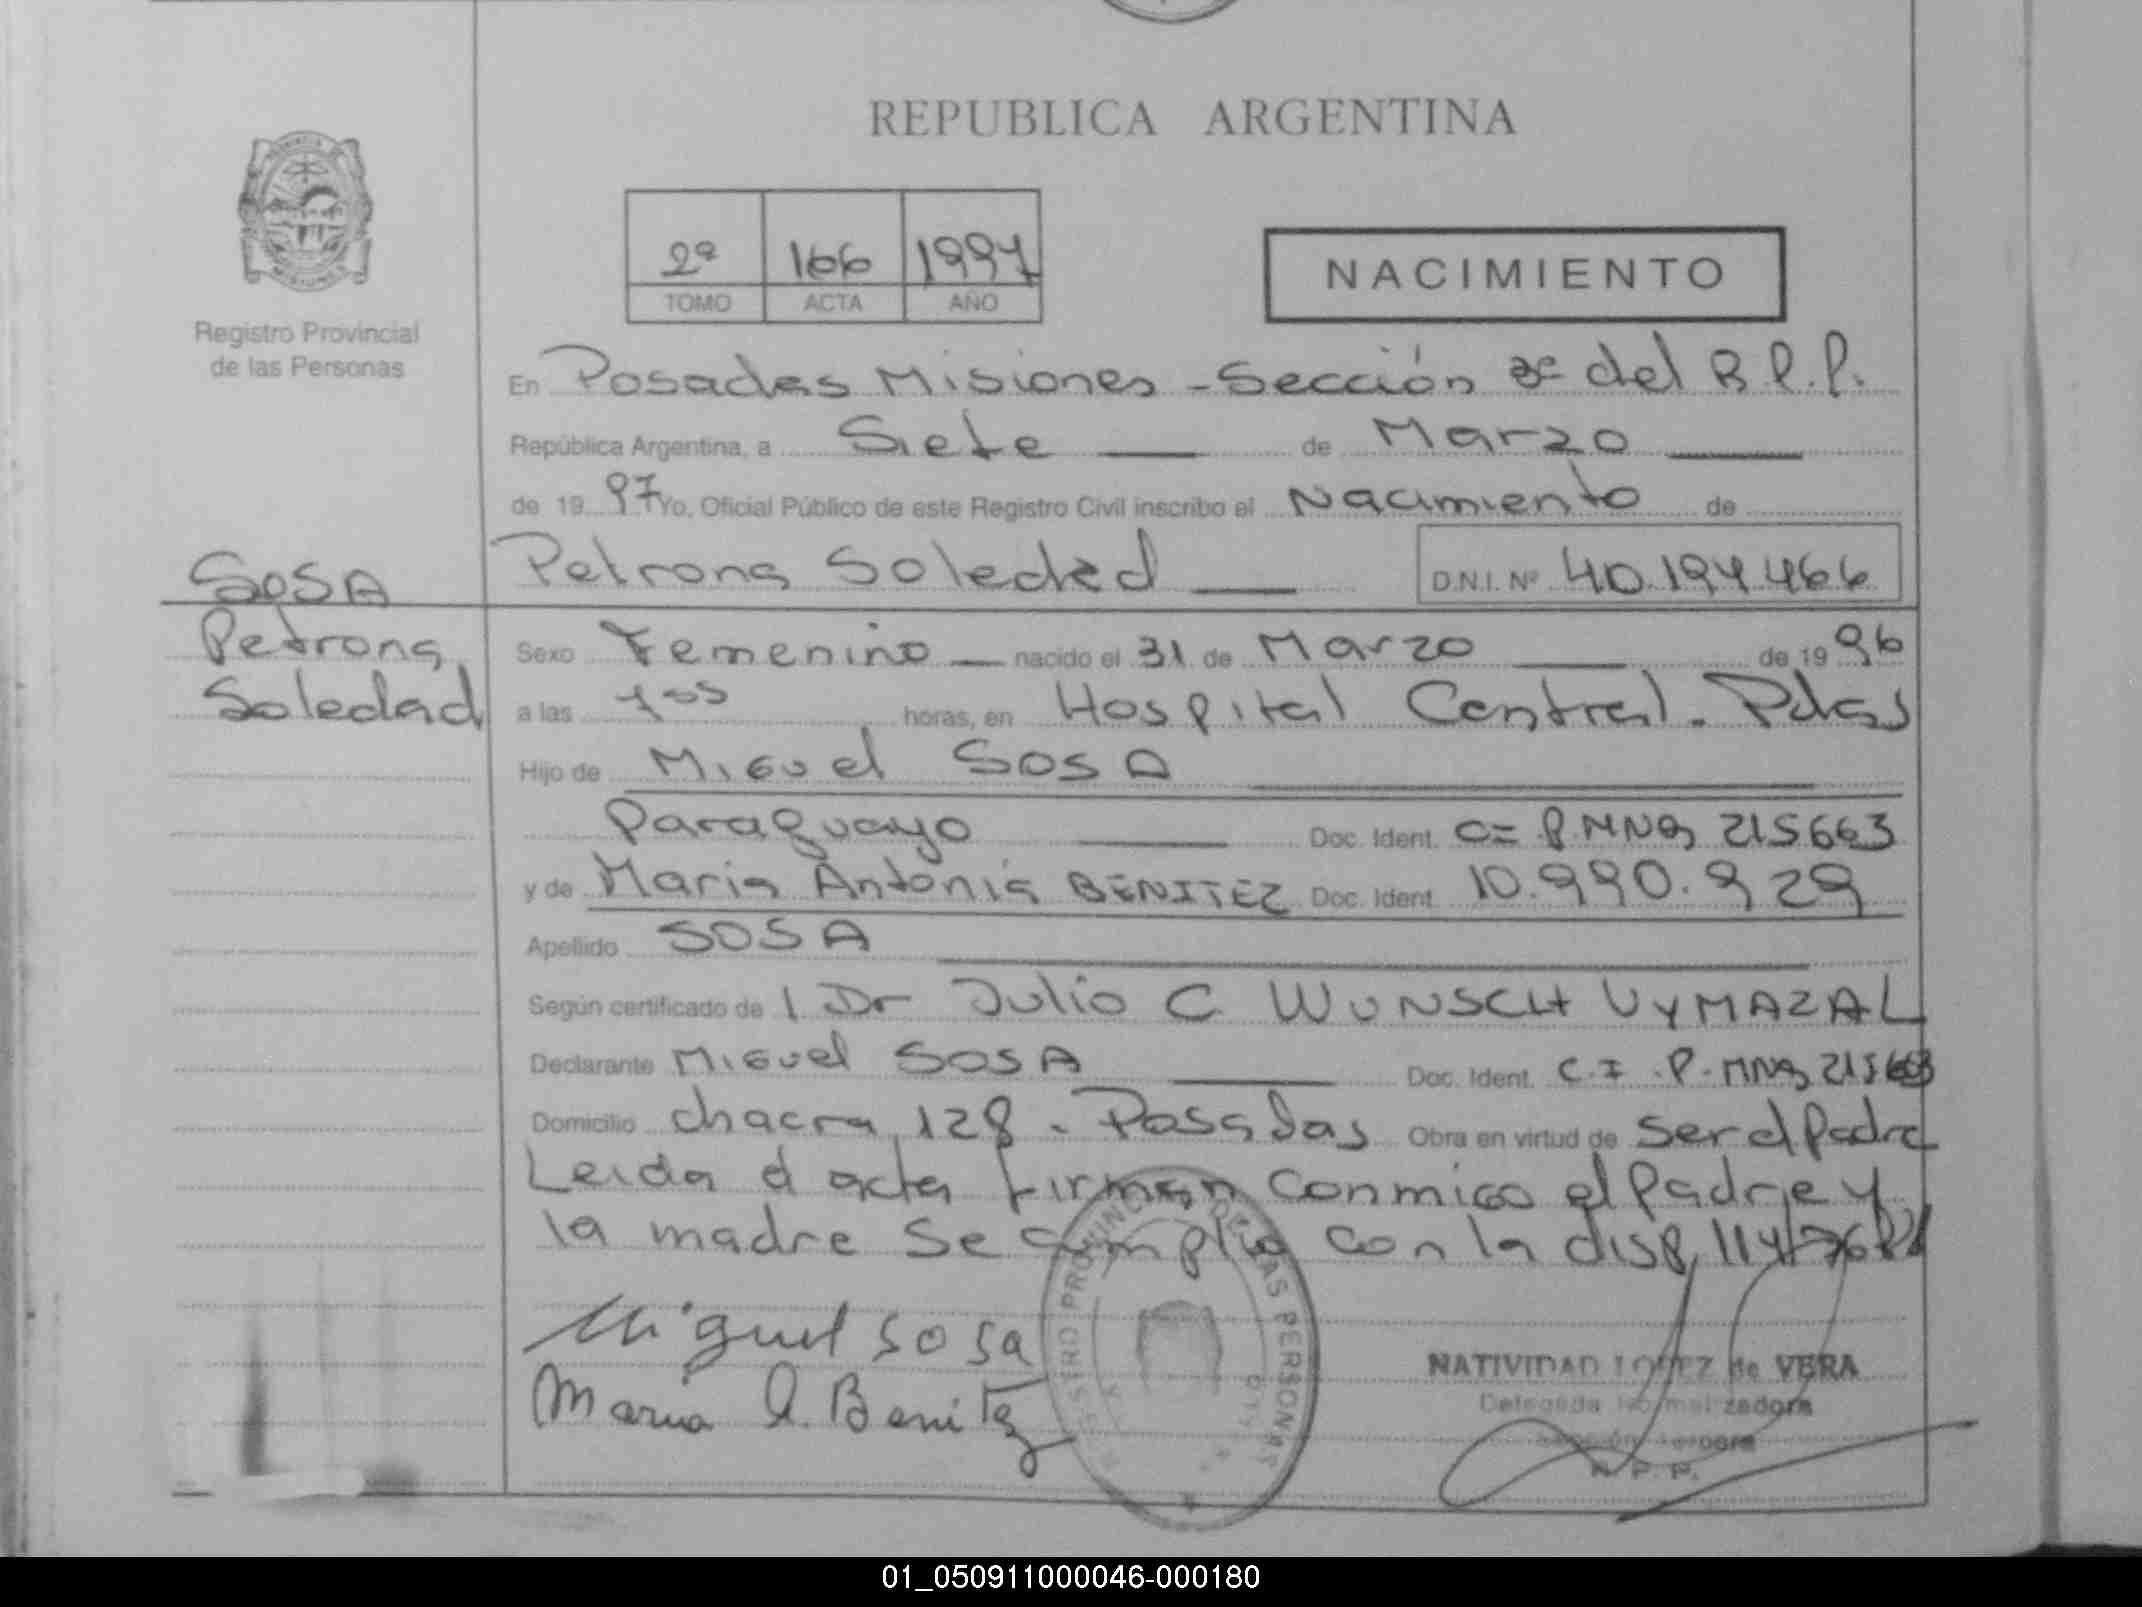 REPUBLICA ARGENTINA
2º 166 1997
TOMO ACTA AÑO
NACIMIENTO
Registro Provincial
de las Personas
En Posadas Misiones - Sección 3º del R.P.P.
República Argentina, a Siete de Marzo
de 19 97 Yo, Oficial Público de este Registro Civil inscribo el Nacimiento de
Petrona Soledad D.N.I. Nº 40.194.466
SOSA
Petrona
Soledad
Sexo Femenino nacido el 31 de Marzo de 19 96
a las horas, en Hospital Central. Pdas
Hijo de Miguel SOSA
Paraguayo Doc. Ident. P. MNES 215663
y de Maria Antonia BENITEZ Doc. Ident. 10.990.929
Apellido SOSA
Según certificado de 1 Dr Julio C. WUNSCH VYMAZAL
Declarante Miguel SOSA Doc. Ident. C.I. P. MNES 215663
Domicilio chacra 128 - Posadas Obra en virtud de ser el Padre
Leida el acta firman conmigo el Padre y
la madre se cumplio con la disp, 114/76
Miguel Sosa
Maria A. Benitez
REGISTRO PROVINCIAL DE LAS PERSONAS
NATIVIDAD LOPEZ de VERA
Delegada Normalizadora
Sección Tercera
R. P. P.
01_050911000046-000180